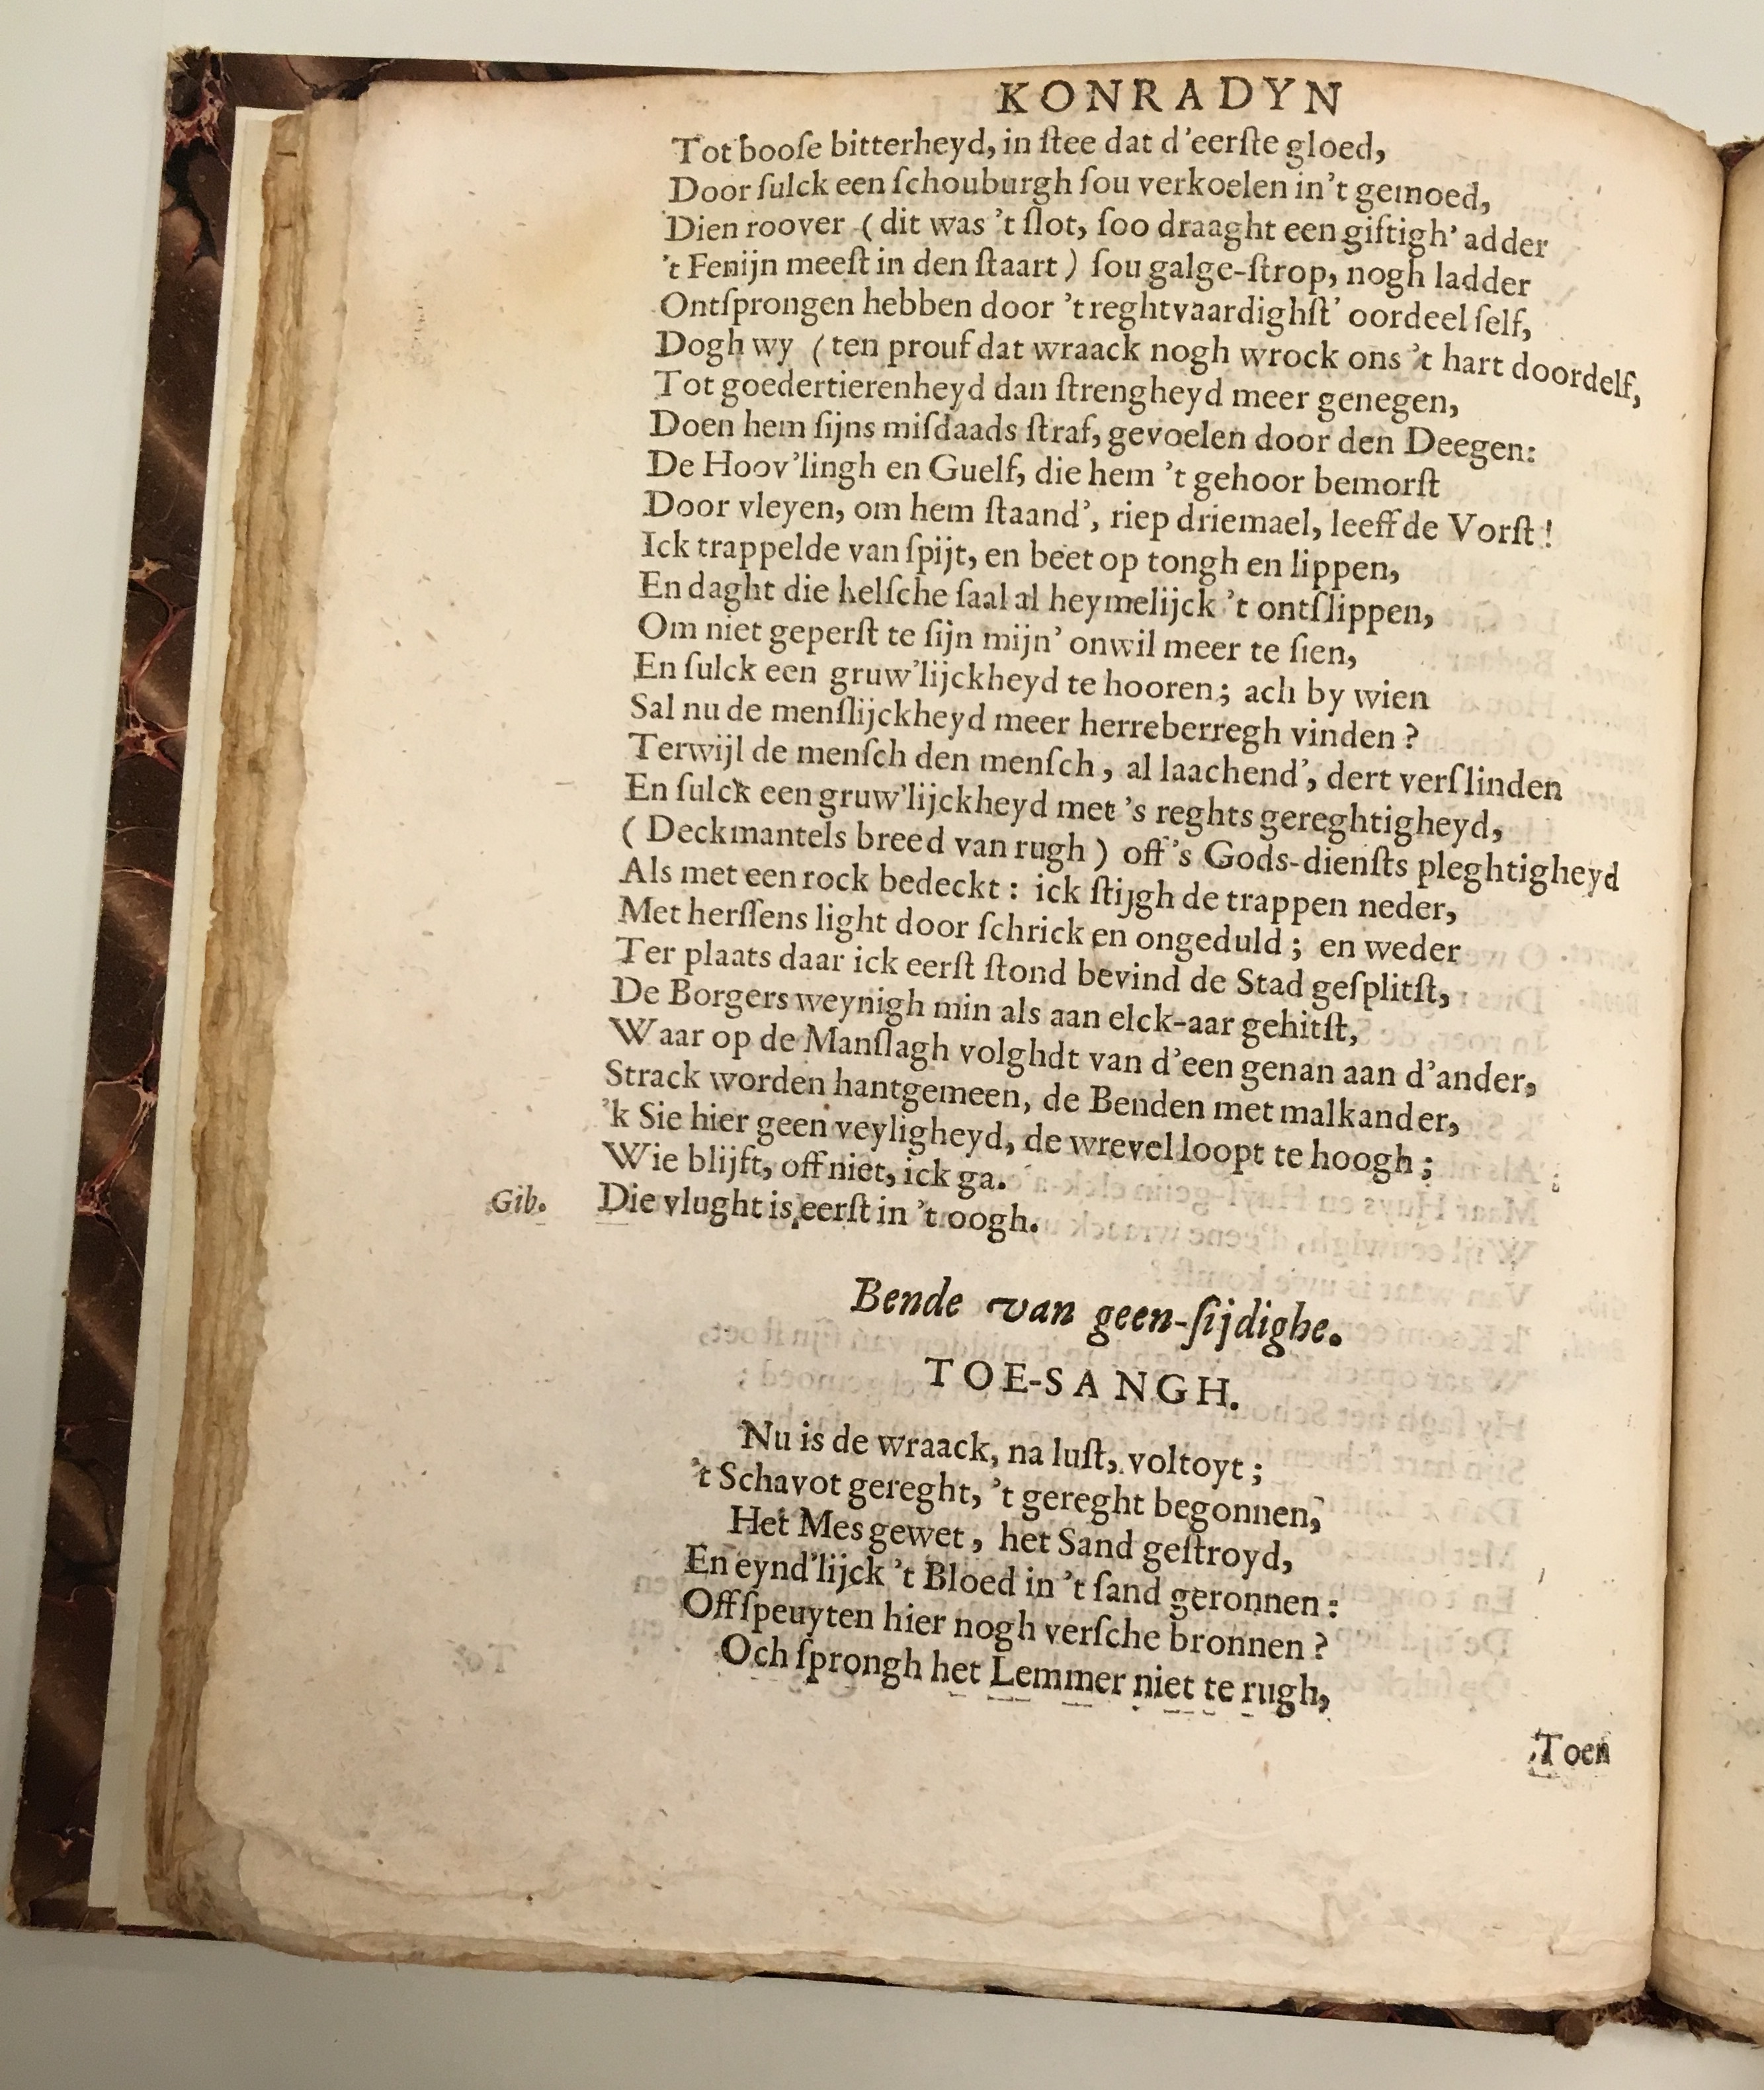 KONRADYN
Tot booſe bitterheyd, in ſtee dat d'eerſte gloed,
Door ſulck een ſchouburgh ſou verkoelen in't gemoed,
Dien roover (dit was 't ſlot, ſoo draaght een giftigh' adder
't Fenijn meeſt in den ſtaart) ſou galge-ſtrop, nogh ladder
Ontſprongen hebben door 't reghtvaardighſt' oordeel ſelf,
Dogh wy (ten prouf dat wraack nogh wrock ons 't hart doordelf,
Tot goedertierenheyd dan ſtrengheyd meer genegen,
Doen hem ſijns miſdaads ſtraf, gevoelen door den Deegen:
De Hoov'lingh en Guelf, die hem 't gehoor bemorſt
Door vleyen, om hem ſtaand', riep driemael, leeff de Vorſt!
Ick trappelde van ſpijt, en beet op tongh en lippen,
En daght die helſche ſaal al heymelijck 't ontſlippen,
Om niet geperſt te ſijn mijn' onwil meer te ſien,
En ſulck een gruw'lijckheyd te hooren; ach by wien
Sal nu de menſlijckheyd meer herreberregh vinden?
Terwijl de menſch den menſch, al laachend', dert verſlinden
En ſulck een gruw'lijckheyd met 's reghts gereghtigheyd,
(Deckmantels breed van rugh) off 's Gods-dienſts pleghtigheyd
Als met een rock bedeckt: ick ſtijgh de trappen neder,
Met herſſens light door ſchrick en ongeduld; en weder
Ter plaats daar ick eerſt ſtond bevind de Stad geſplitſt,
De Borgers weynigh min als aan elck-aar gehitſt,
Waar op de Manſlagh volghdt van d'een genan aan d'ander,
Strack worden hantgemeen, de Benden met malkander,
'k Sie hier geen veyligheyd, de wrevel loopt te hoogh;
Wie blijft, off niet, ick ga.
Gib. Die vlught is eerſt in 't oogh.
Bende van geen-ſijdighe.
TOE-SANGH.
Nu is de wraack, na luſt, voltoyt;
't Schavot gereght, 't gereght begonnen,
Het Mes gewet, het Sand geſtroyd,
En eynd'lijck 't Bloed in 't ſand geronnen:
Off ſpeuyten hier nogh verſche bronnen?
Och ſprongh het Lemmer niet te rugh,
Toen